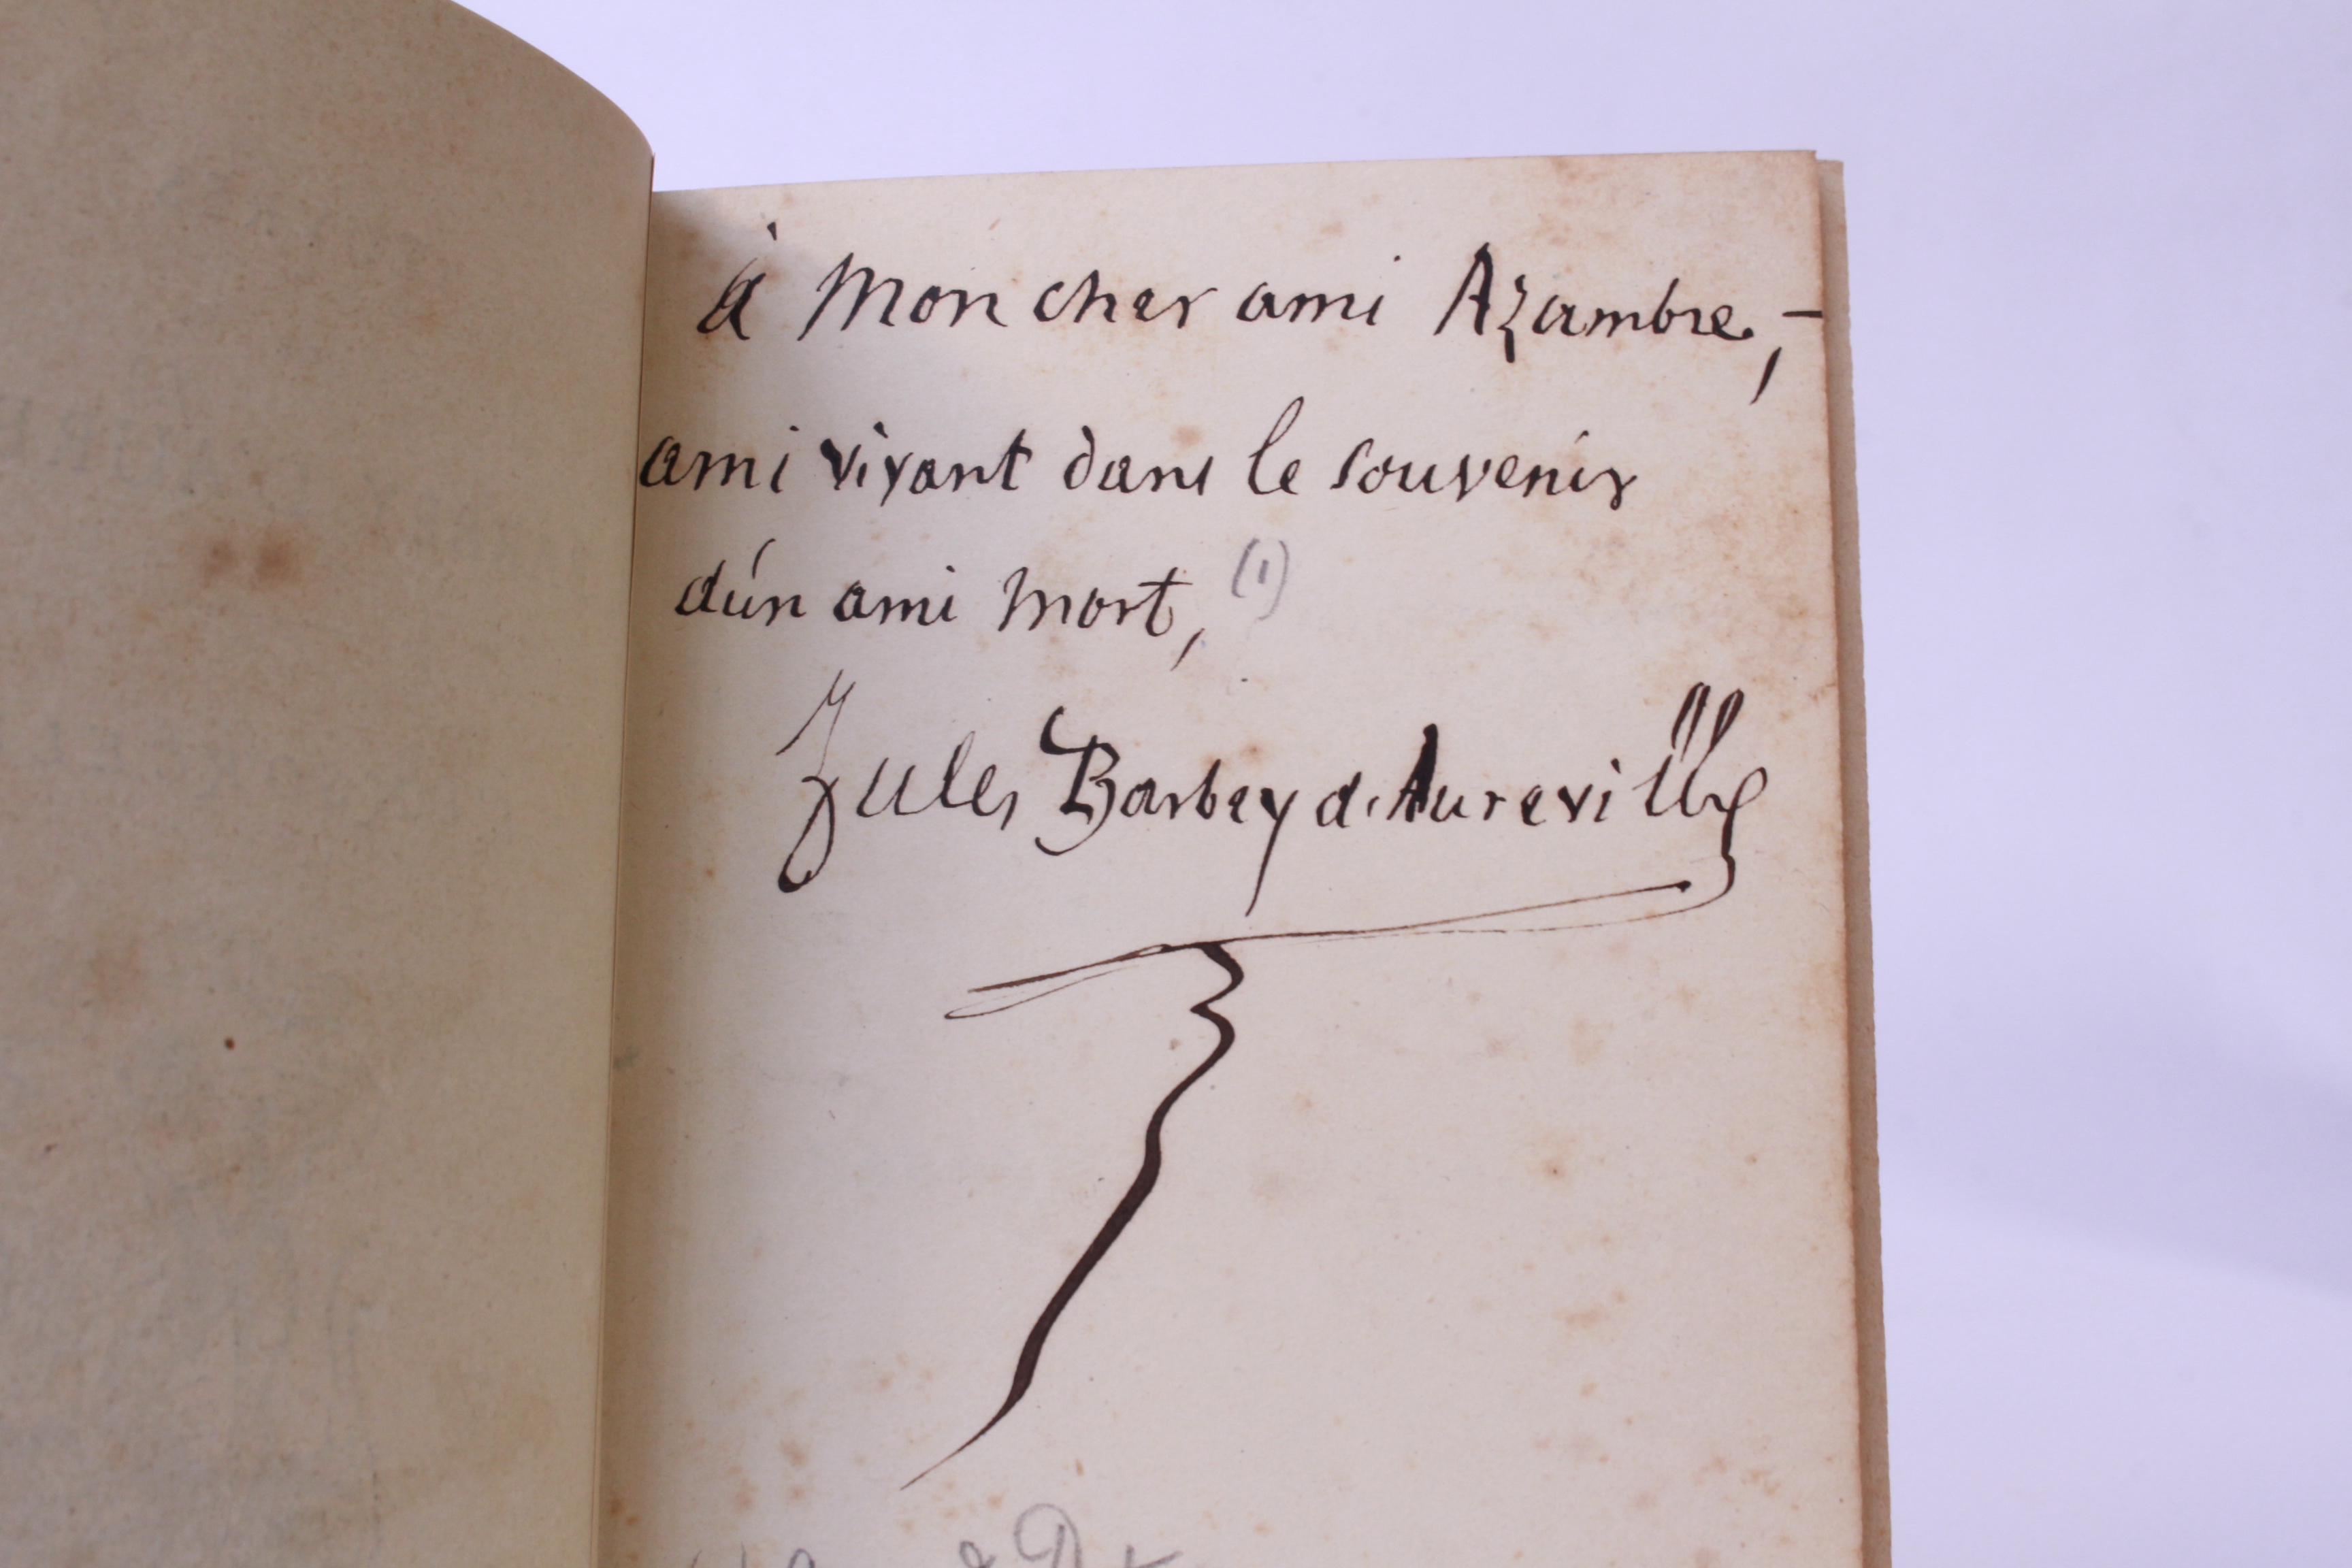 à Mon cher ami Azambre, –
ami vivant dans le souvenir
d'un ami mort, (1)
Jules Barbey d'Aurevilly